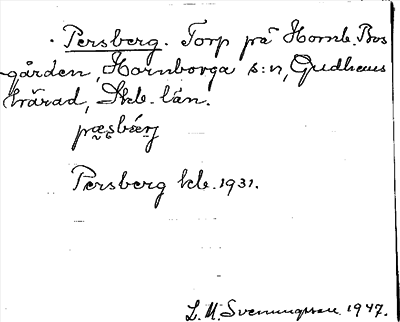 Persberg. Torp på Hornb. Bos
gården, Hornborga s:n, Gudhems
härad, Skb. län.
pæsbærj
Persberg kb. 1931.
L. M. Svenungsson. 1947.